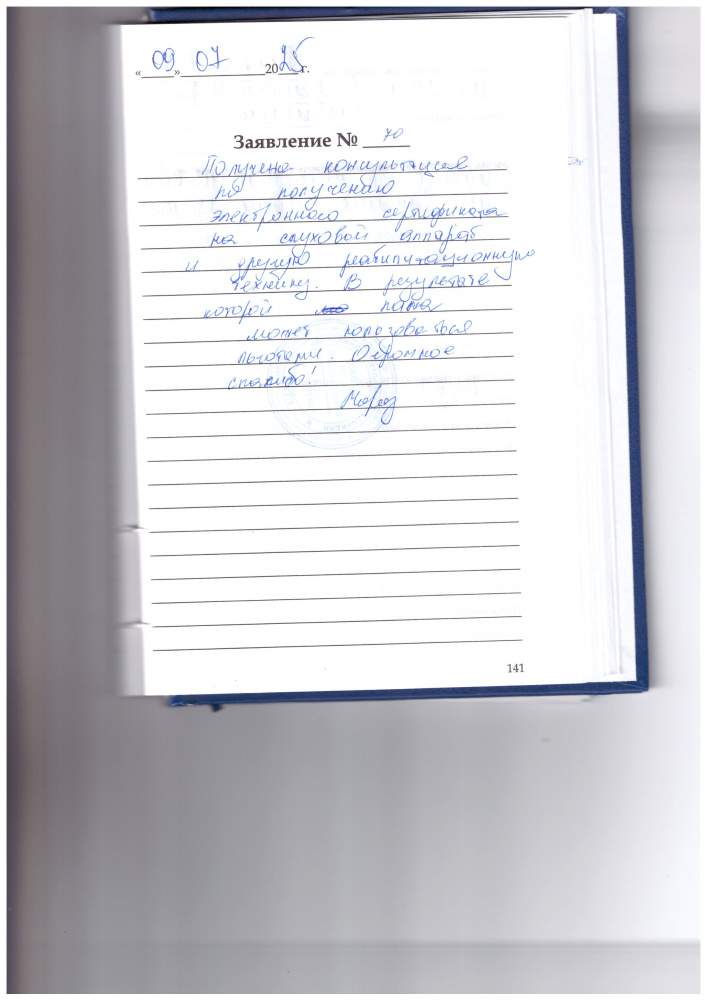 «09» 07 2025 г.
Заявление № 70
Получена консультация
по получению
электронного сертификата
на слуховой аппарат
и другую реабилитационную
технику. В результате
которой папа
может пользоваться
льготами. Огромное
спасибо!
141